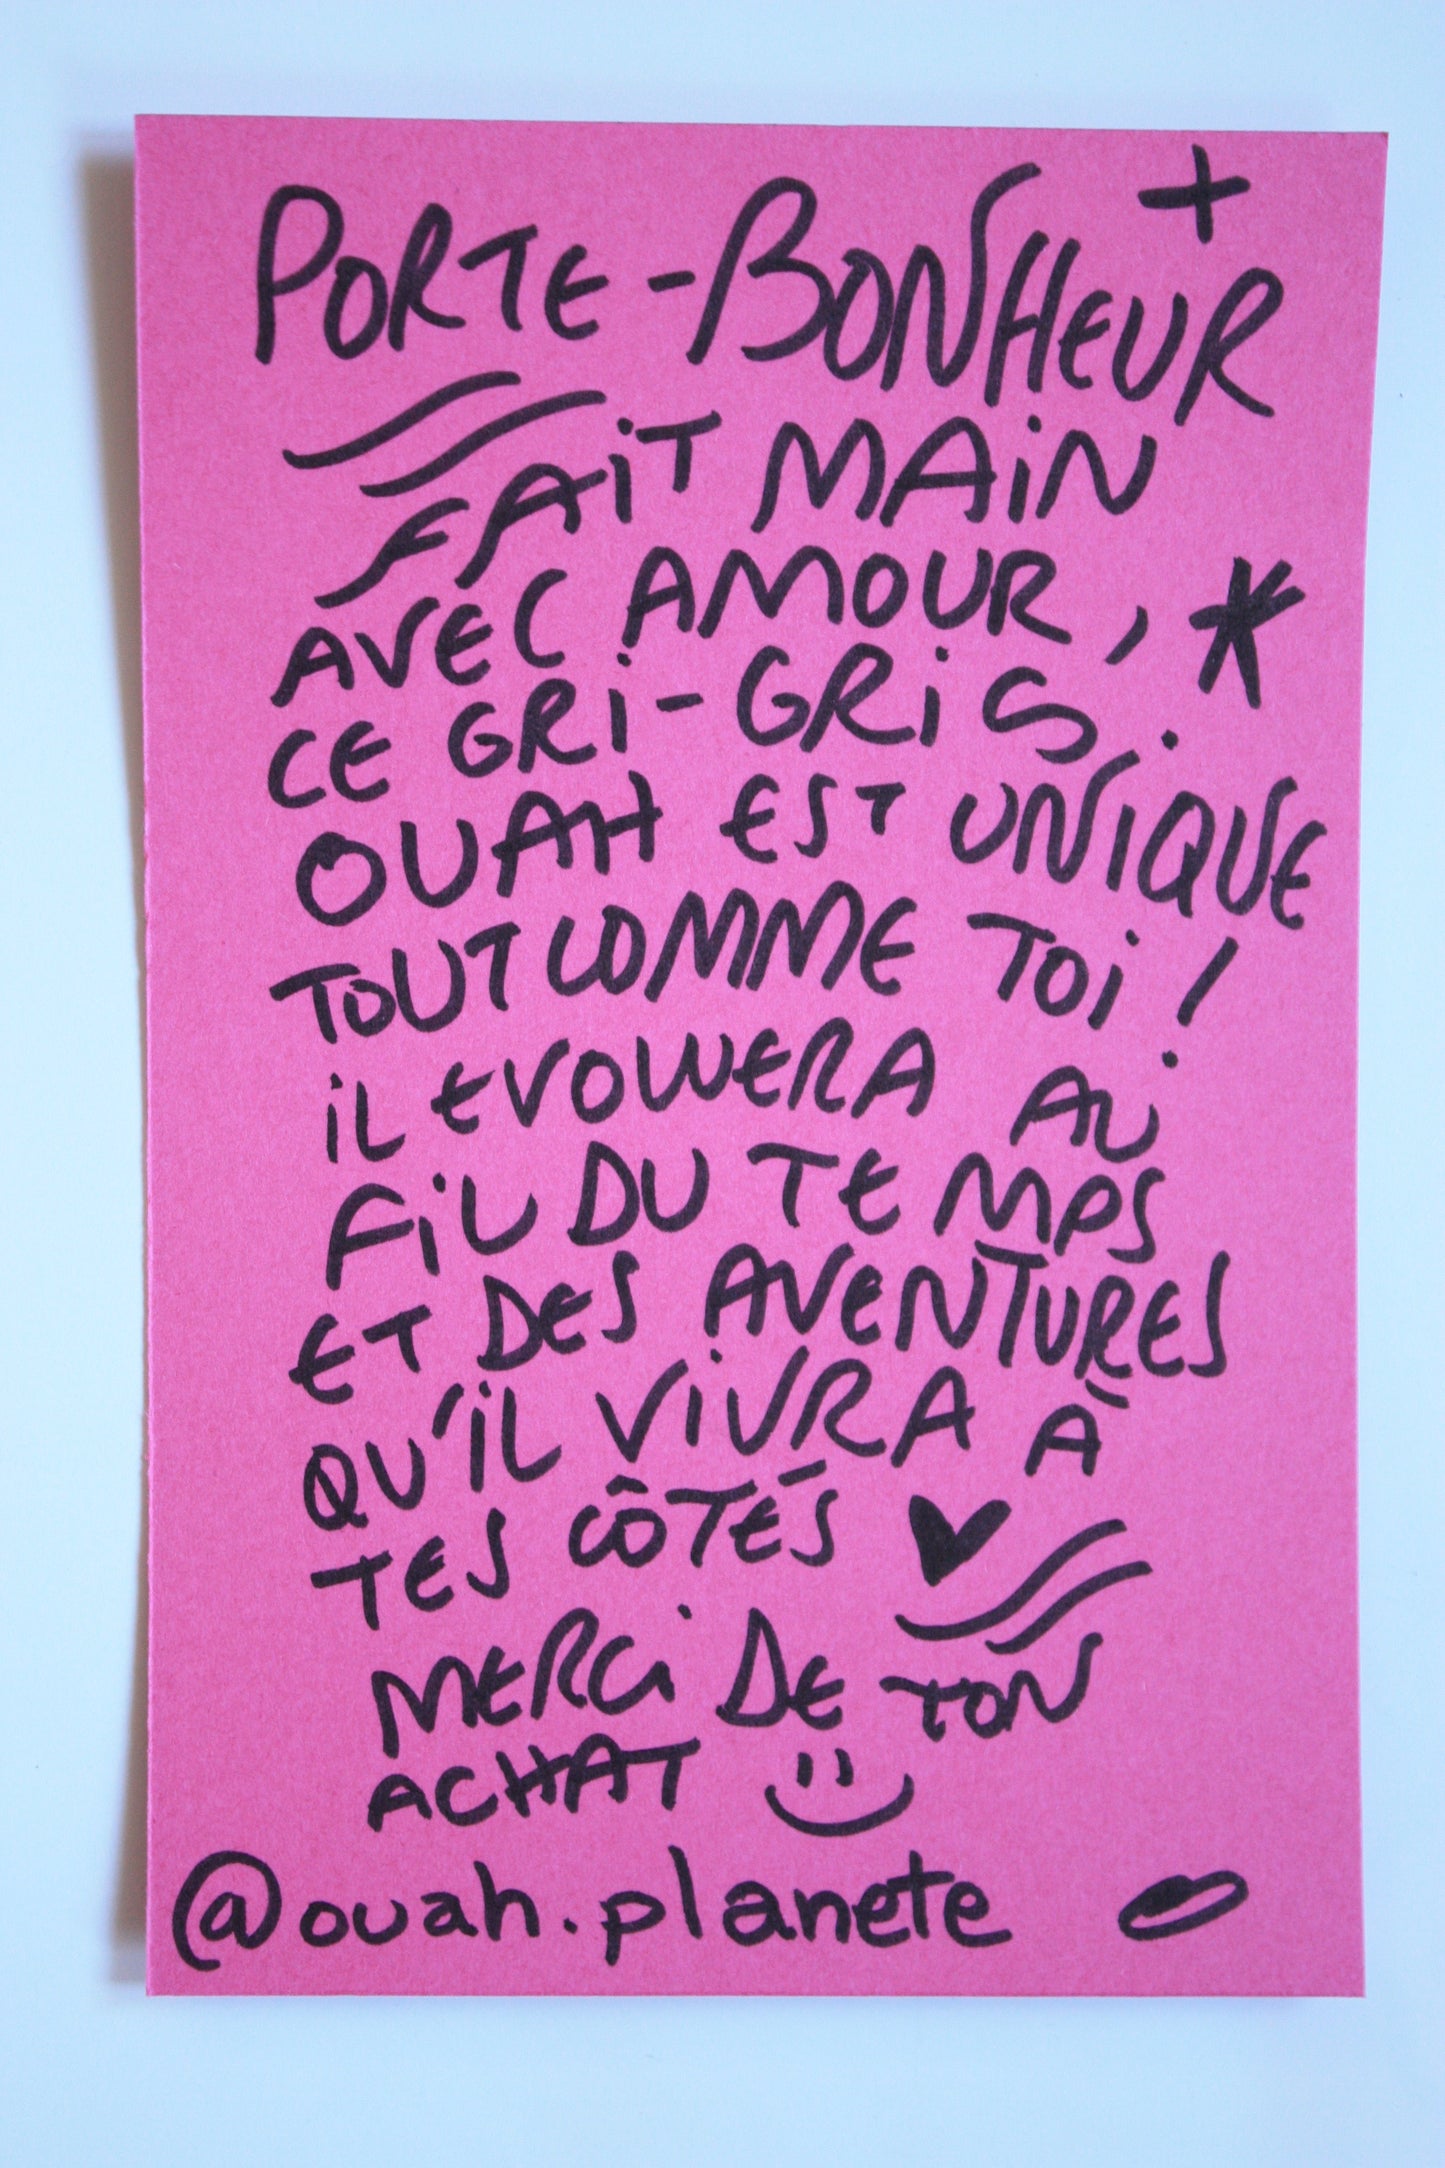 PORTE-BONHEUR
FAiT MAiN
AVEC AMOUR,
CE GRi-GRiS
OUAH EST UNiQUE
TOUT COMME TOi !
iL EVOLUERA AU
FiL DU TEMPS
ET DES AVENTURES
QU'iL VIVRA À
TES CÔTÉS
MERCi DE TON
ACHAT
@ouah.planete